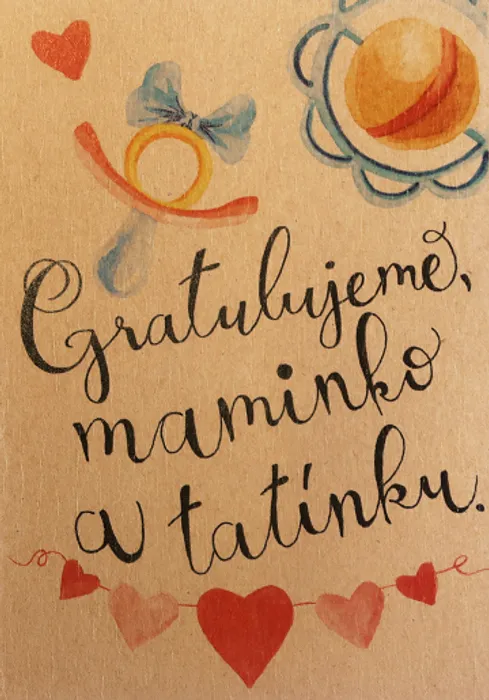 Gratulujeme,
maminko
a tatínku.